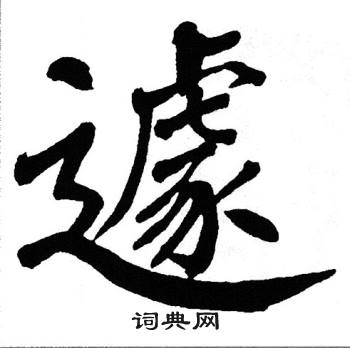 遽
词典网